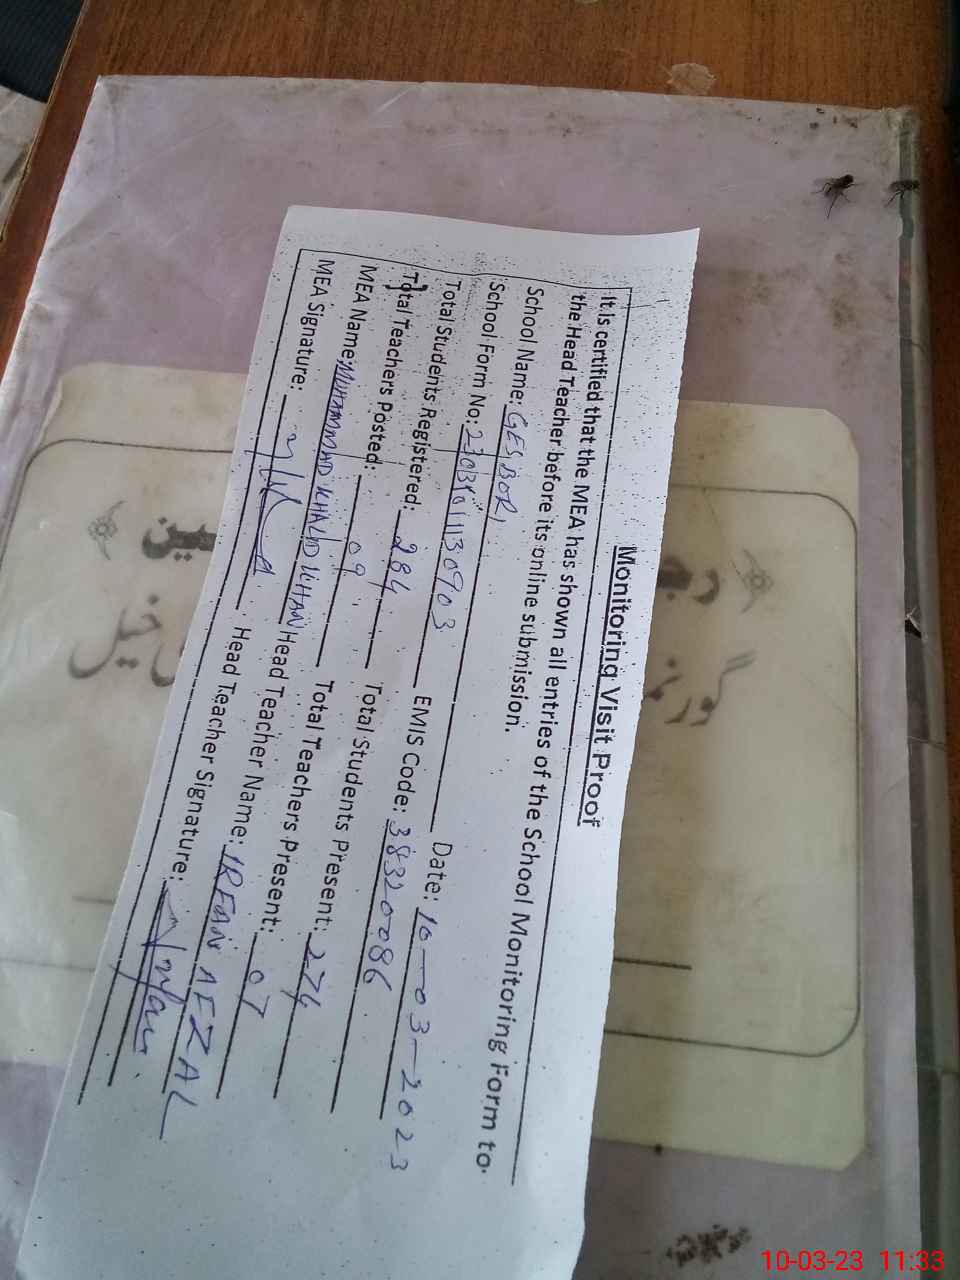 Monitoring Visit Proof
It is certified that the MEA has shown all entries of the School Monitoring Form to
the Head Teacher before its online submission.
School Name: GES BORI
School Form No: Date: 10-03-2023
Total Students Registered: 284 EMIS Code: 38320086
Total Teachers Posted: 09 Total Students Present: 274
MEA Name: MUHAMMAD KHALID KHAN Total Teachers Present: 07
MEA Signature: Head Teacher Name: IRFAN AFZAL
Head Teacher Signature: Irfan
گورنمنٹ
خیل
10-03-23 11:33